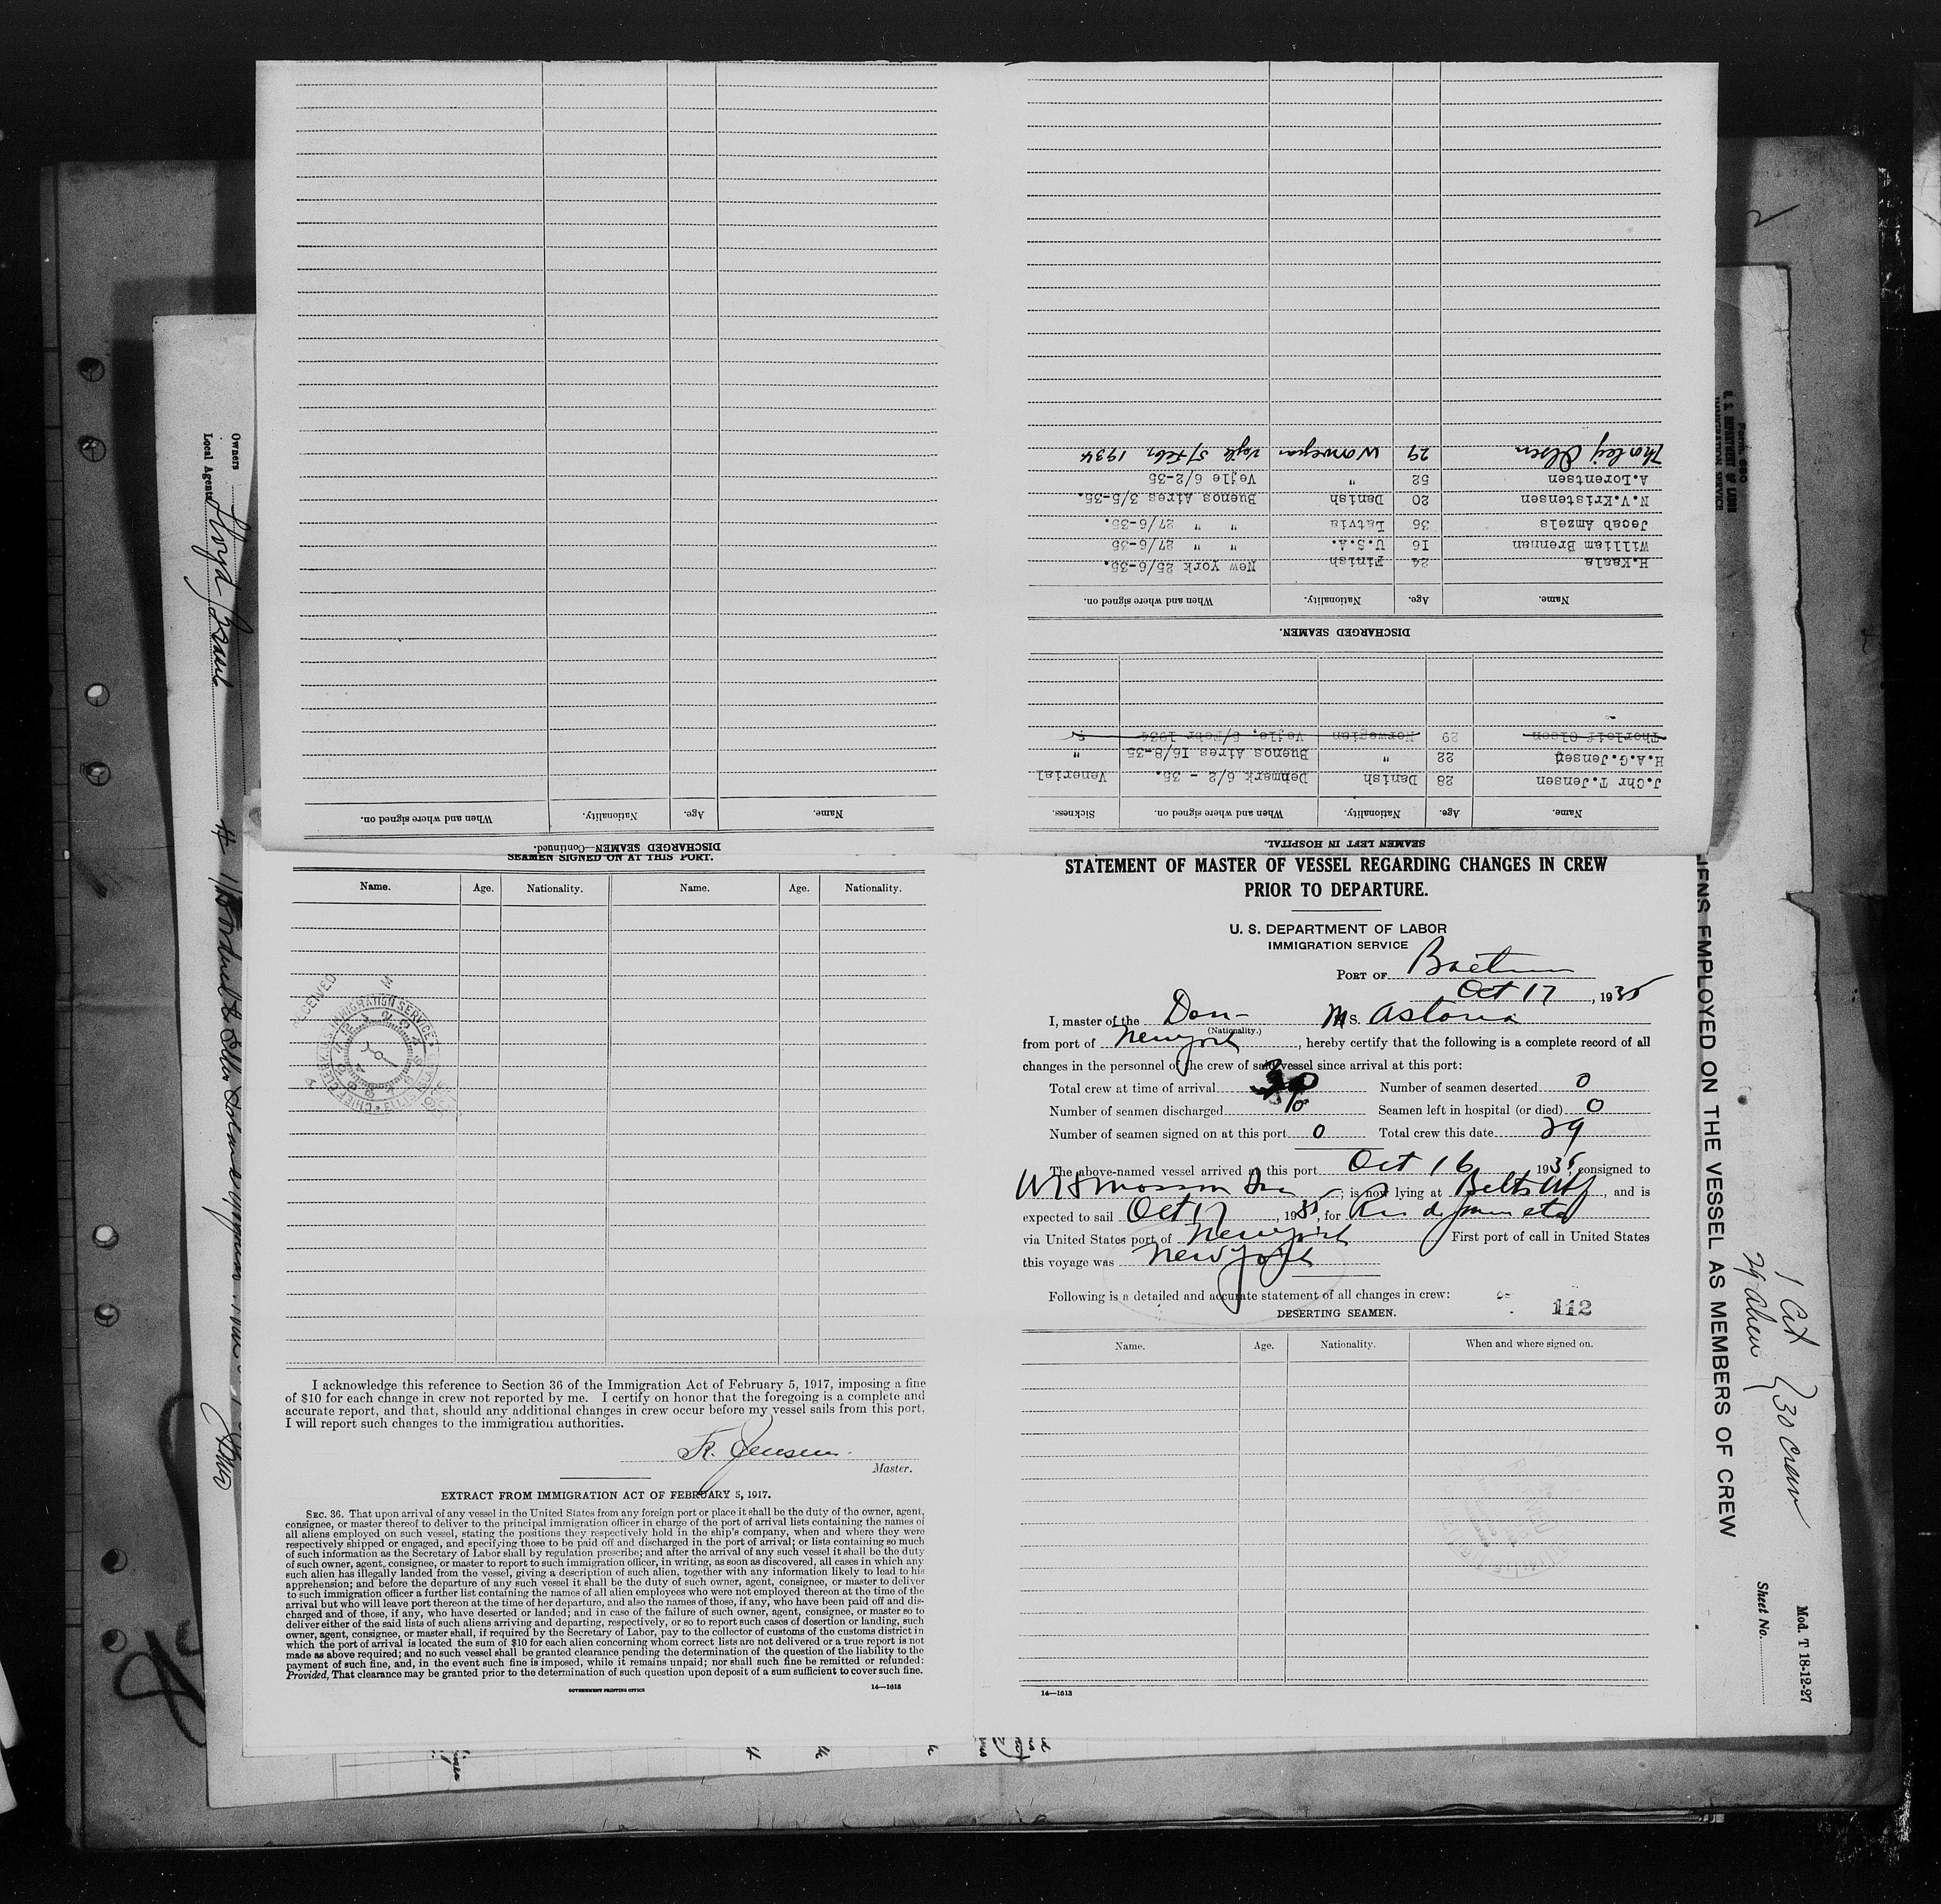 SEAMEN LEFT IN HOSPITAL.
Name. Age. Nationality. When and where signed on. Sickness.
J.Chr T.Jensen 28 Danish Denmark 6/2 - 35. Venerial
H.A.G.Jensen 22 " Buenos Aires 16/8-35 "
Thorleif Olsen 29 Norwegian Vejle, 5/Febr 1934
DISCHARGED SEAMEN.
Name. Age. Nationality. When and where signed on.
H.Kaala 24 Finish New York 25/6-35.
William Brennan 16 U.S.A. " " 27/6-35
Jecab Amzels 36 Latvia " " 27/6-35.
N.V.Kristensen 20 Danish Buenos Aires 3/5-35.
A.Lorentsen 52 " Vejle 6/2-35
Thorleif Olsen 29 Norwegian Vejle 5/Febr. 1934
DISCHARGED SEAMEN—Continued.
Name. Age. Nationality. When and where signed on.
SEAMEN SIGNED ON AT THIS PORT.
Name. Age. Nationality. Name. Age. Nationality.
RECEIVED
IMMIGRATION SERVICE
I acknowledge this reference to Section 36 of the Immigration Act of February 5, 1917, imposing a fine
of $10 for each change in crew not reported by me. I certify on honor that the foregoing is a complete and
accurate report, and that, should any additional changes in crew occur before my vessel sails from this port,
I will report such changes to the immigration authorities.
Jensen
Master.
EXTRACT FROM IMMIGRATION ACT OF FEBRUARY 5, 1917.
SEC. 36. That upon arrival of any vessel in the United States from any foreign port or place it shall be the duty of the owner, agent,
consignee, or master thereof to deliver to the principal immigration officer in charge of the port of arrival lists containing the names of
all aliens employed on such vessel, stating the positions they respectively hold in the ship's company, when and where they were
respectively shipped or engaged, and specifying those to be paid off and discharged in the port of arrival; or lists containing so much
of such information as the Secretary of Labor shall by regulation prescribe; and after the arrival of any such vessel it shall be the duty
of such owner, agent, consignee, or master to report to such immigration officer, in writing, as soon as discovered, all cases in which any
such alien has illegally landed from the vessel, giving a description of such alien, together with any information likely to lead to his
apprehension; and before the departure of any such vessel it shall be the duty of such owner, agent, consignee, or master to deliver
to such immigration officer a further list containing the names of all alien employees who were not employed thereon at the time of the
arrival but who will leave port thereon at the time of her departure, and also the names of those, if any, who have been paid off and dis-
charged and of those, if any, who have deserted or landed; and in case of the failure of such owner, agent, consignee, or master so to
deliver either of the said lists of such aliens arriving and departing, respectively, or so to report such cases of desertion or landing, such
owner, agent, consignee, or master shall, if required by the Secretary of Labor, pay to the collector of customs of the customs district in
which the port of arrival is located the sum of $10 for each alien concerning whom correct lists are not delivered or a true report is not
made as above required; and no such vessel shall be granted clearance pending the determination of the question of the liability to the
payment of such fine, and, in the event such fine is imposed, while it remains unpaid; nor shall such fine be remitted or refunded:
Provided, That clearance may be granted prior to the determination of such question upon deposit of a sum sufficient to cover such fine.
GOVERNMENT PRINTING OFFICE 14—1613
STATEMENT OF MASTER OF VESSEL REGARDING CHANGES IN CREW
PRIOR TO DEPARTURE.
U. S. DEPARTMENT OF LABOR
IMMIGRATION SERVICE
PORT OF
Oct 17, 1935
I, master of the Dan- MS. Astoria
(Nationality.)
from port of New York, hereby certify that the following is a complete record of all
changes in the personnel of the crew of said vessel since arrival at this port:
Total crew at time of arrival 30 Number of seamen deserted 0
Number of seamen discharged Seamen left in hospital (or died) 0
Number of seamen signed on at this port 0 Total crew this date 29
The above-named vessel arrived at this port Oct 16 1935, consigned to
; is now lying at Belts, and is
expected to sail Oct 17, 1935, for
via United States port of New York First port of call in United States
this voyage was New York
Following is a detailed and accurate statement of all changes in crew:
112
DESERTING SEAMEN.
Name. Age. Nationality. When and where signed on.
14—1613
Owners
Local Agents
Lloyd
ALIENS EMPLOYED ON THE VESSEL AS MEMBERS OF CREW
U. S. DEPARTMENT OF LABOR
IMMIGRATION SERVICE
1 Cit
29 alien
30 crew
Sheet No.
Mod. T 18-12-27